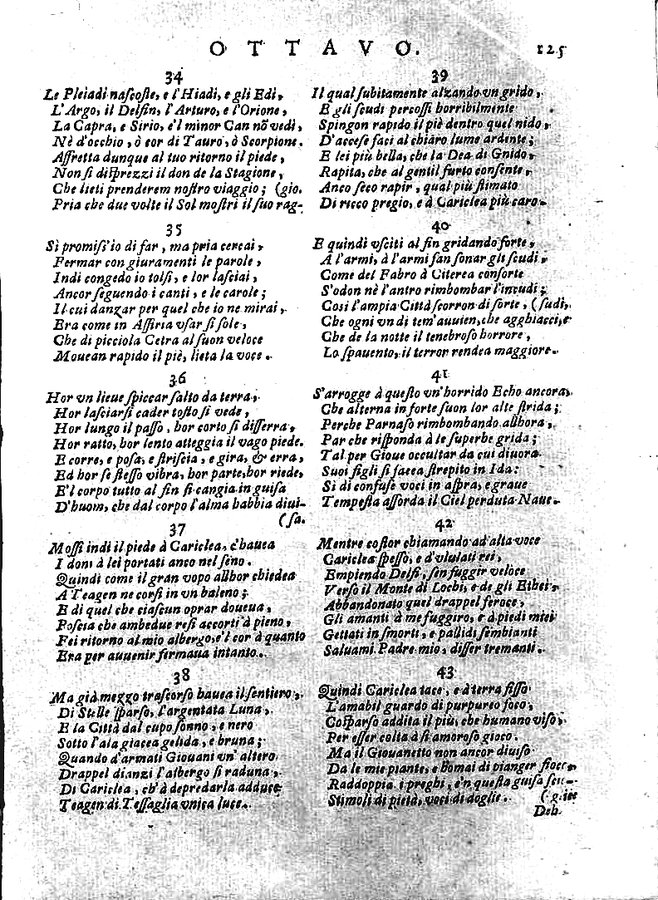 OTTAVO. 125
34
Le Pleiadi nascoste, e l'Hiadi, e gli Edi,
L'Argo, il Delfin, l'Arturo, e l'Orione,
La Capra, e Sirio, e'l minor Can nõ vedi,
Nè d'occhio, ò cor di Tauro, ò Scorpione.
Affretta dunque al tuo ritorno il piede,
Non si disprezzi il don de la Stagione,
Che lieti prenderem nostro viaggio; (gio.
Pria che due volte il Sol mostri il suo rag-
35
Sì promis'io di far, ma pria cercai,
Fermar con giuramenti le parole,
Indi congedo io tolsi, e lor lasciai,
Ancor seguendo i canti, e le carole;
Il cui danzar per quel che io ne mirai,
Era come in Assiria usar si sole,
Che di picciola Cetra al suon veloce
Movean rapido il piè, lieta la voce.
36
Hor vn lieue spiccar salto da terra,
Hor lasciarsi cader tosto si vede,
Hor lungo il passo, hor corto si disserra,
Hor ratto, hor lento atteggia il vago piede.
E corre, e posa, e striscia, e gira, & erra,
Ed hor se stesso vibra, hor parte, hor riede,
E'l corpo tutto al fin si cangia in guisa
D'huom, che dal corpo l'alma habbia diui-
(sa.
37
Mossi indi il piede à Cariclea, c'hauea
I doni à lei portati anco nel seno.
Quindi come il gran vopo allhor chiedea
A Teagen ne corsi in vn baleno;
E di quel che ciascun oprar doueua,
Poscia che ambedue resi accorti à pieno,
Fei ritorno al mio albergo, e'l cor à quanto
Era per auuenir fermaua intanto.
38
Ma già meggo trascorso hauea il sentiero,
Di Stelle sparso, l'argentata Luna,
E la Città dal cupo sonno, e nero
Sotto l'ala giacea gelida, e bruna;
Quando d'armati Giouani vn'altero
Drappel dianzi l'albergo si raduna,
Di Cariclea, ch'à depredarla adduce
Teagen di Tessaglia vnica luce.
39
Il qual subitamente alzando vn grido,
E gli scudi percossi horribilmente
Spingon rapido il piè dentro quel nido,
D'accese faci al chiaro lume ardente;
E lei più bella, che la Dea di Gnido,
Rapita, che al gentil furto consente,
Anco seco rapir, qual più stimato
Di ricco pregio, e à Cariclea più caro.
40
E quindi vsciti al fin gridando forte,
A l'armi, à l'armi fan sonar gli scudi,
Come del Fabro à Citerea consorte
S'odon nè l'antro rimbombar l'incudi;
Così l'ampia Città scorron di sorte, (sudi,
Che ogni vn di tem'auuien, che agghiacci, e
Che de la notte il tenebroso horrore,
Lo spauento, il terror rendea maggiore.
41
S'arrogge à questo vn'horrido Echo ancora,
Che alterna in forte suon lor alte strida;
Perche Parnaso rimbombando allhora,
Par che risponda à le superbe grida;
Tal per Gioue occultar da cui diuora
Suoi figli si facea strepito in Ida:
Sì di confuse voci in aspra, e graue
Tempesta assorda il Ciel perduta Naue.
42
Mentre costor chiamando ad alta voce
Cariclea spesso, e d'vlulati rei,
Empiendo Delfi, sen fuggir veloce
Verso il Monte di Lochi, e de gli Ethei,
Abbandonato quel drappel feroce,
Gli amanti à me fuggiro, e à piedi miei
Gettati in smorti, e pallidi sembianti
Saluami Padre mio, disser tremanti.
43
Quindi Cariclea tace, e à terra fisso
L'amabil guardo di purpureo foco,
Cosparso addita il più, che humano viso,
Per esser colta à sì amoroso gioco.
Ma il Giouanetto non ancor diuiso
Da le mie piante, e homai di pianger fioco,
Raddoppia i preghi, e'n questa guisa scio-
Stimoli di pietà, voci di doglie. (glie
Deh